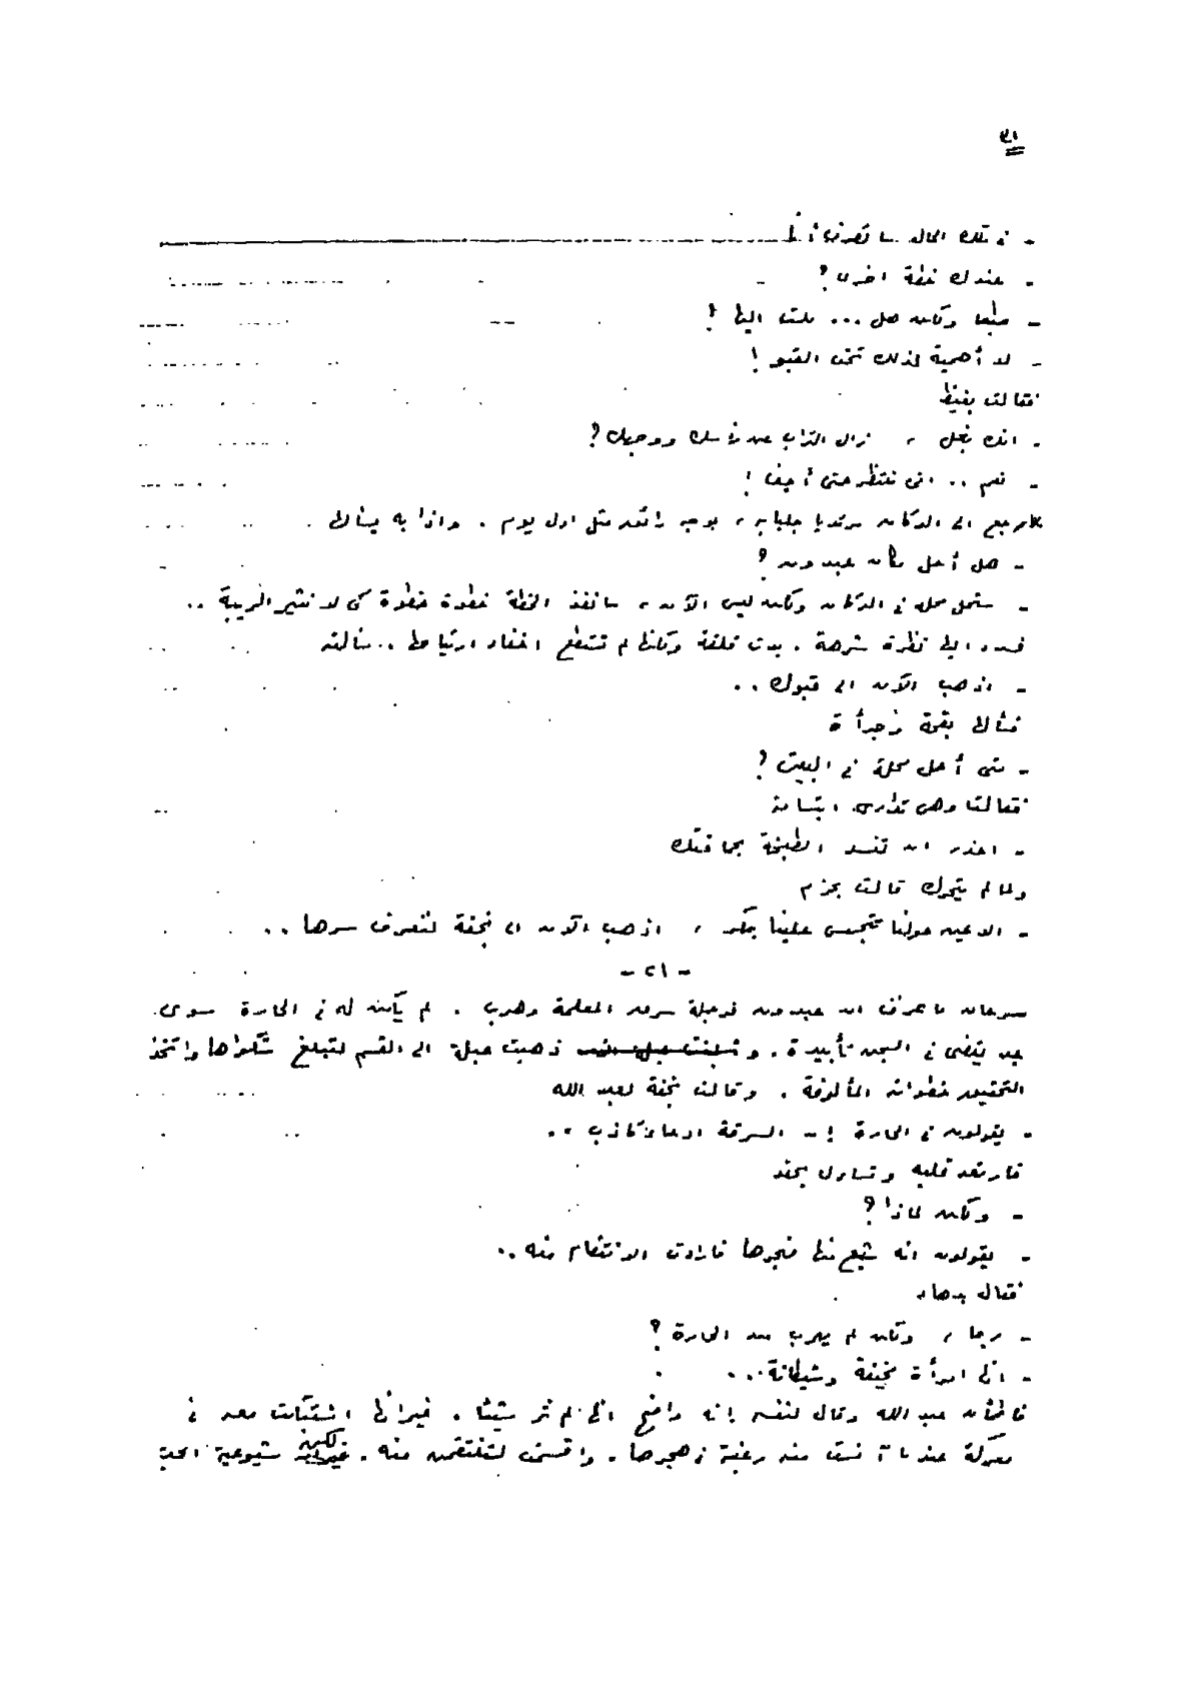 ٣١
- في تلك الحال ستعرفين أنها
- عندك خطة اخرى؟
- طبعا ولكن هل ... ملت اليها؟
- لا أهمية لذلك تحت القبو !
فقالت بغيظ
- انك بغل ، زال التراب عن رأسك ووجهك؟
- نعم .. انى تنتظر حتى أجيف !
رجع الى الدكان مرتديا جلبابه ، بوجه رائد مثل اول يوم . واذا به يسألها
- هل أحل مكان عبدون؟
- ستحل محله في الدكان ولكن ليس الآن ، سأنفذ الخطة خطوة خطوة كى لا نثير الريبة ..
فسدد اليها نظرة شرهة . بدت قلقة ولكنها لم تستطع اخفاء ارتياحها .. سألته
- اذهب الآن الى قبوك ..
فسألها بقحة وجرأة
- متى أحل محله في البيت؟
فقالت وهى تدارى ابتسامة
- احذر ان تفسد الطبخة بحماقتك
ولما لم يتحرك قالت بحزم
- الاعين حولنا تتجسس علينا بمكر ، اذهب الآن الى نجفة لتعرف سرها ..
- ٢١ -
سرعان ما عرف ان عبدون فرجلة سرق المعلمة وهرب . لم يكن له في الحارة سوى
عم يقضى في السجن تأبيدة . و ذهبت عبلة الى القسم لتبلغ شكواها واتخذ
التحقيق خطواته المألوفة . وقالت نجفة لعبد الله
- يقولون في الحارة إن السرقة ادعاء كاذب ..
فارتعد قلبه وتساءل بحذر
- ولكن لماذا؟
- يقولون انه شبع منها فهجرها فارادت الانتقام منه ..
فقال بدهاء
- ربما ، ولكن لم يهرب من الحارة؟
- انها امرأة مخيفة وشيطانة ...
فاطمأن عبد الله وقال لنفسه إنه واضح انها لم تر شيئا . غير انها اشتبكت معه في
معركة عندما آنست منه رغبة في هجرها . واقسمت لتنتقمن منه . لكن شيوعية الحب